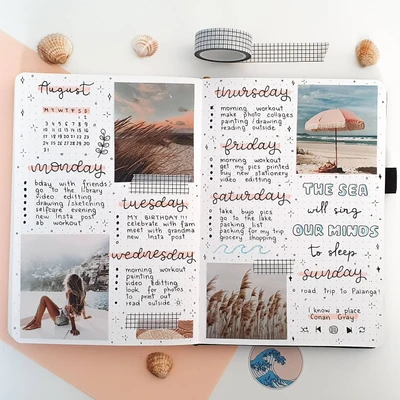 August
M T W T F S S
1 2
3 4 5 6 7 8 9
10 11 12 13 14 15 16
17 18 19 20 21 22 23
24 25 26 27 28 29 30
31
monday
bday with friends
go to the library
video editing
drawing/sketching
selfcare evening
new insta post
ab workout
tuesday
MY BIRTHDAY!!!
celebrate with fam
meet with grandma
new insta post
wednesday
morning workout
painting
video editing
look for photos
to print out
read outside
thursday
morning workout
make photo collages
painting/drawing
reading outside
friday
morning workout
get my pics printed
buy new stationery
video editing
saturday
lake bujo pics
go to the lake
packing list
packing for my trip
grocery shopping
THE SEA
will sing
OUR MINDS
to sleep
sunday
road trip to Palanga!
I know a place
Conan Gray